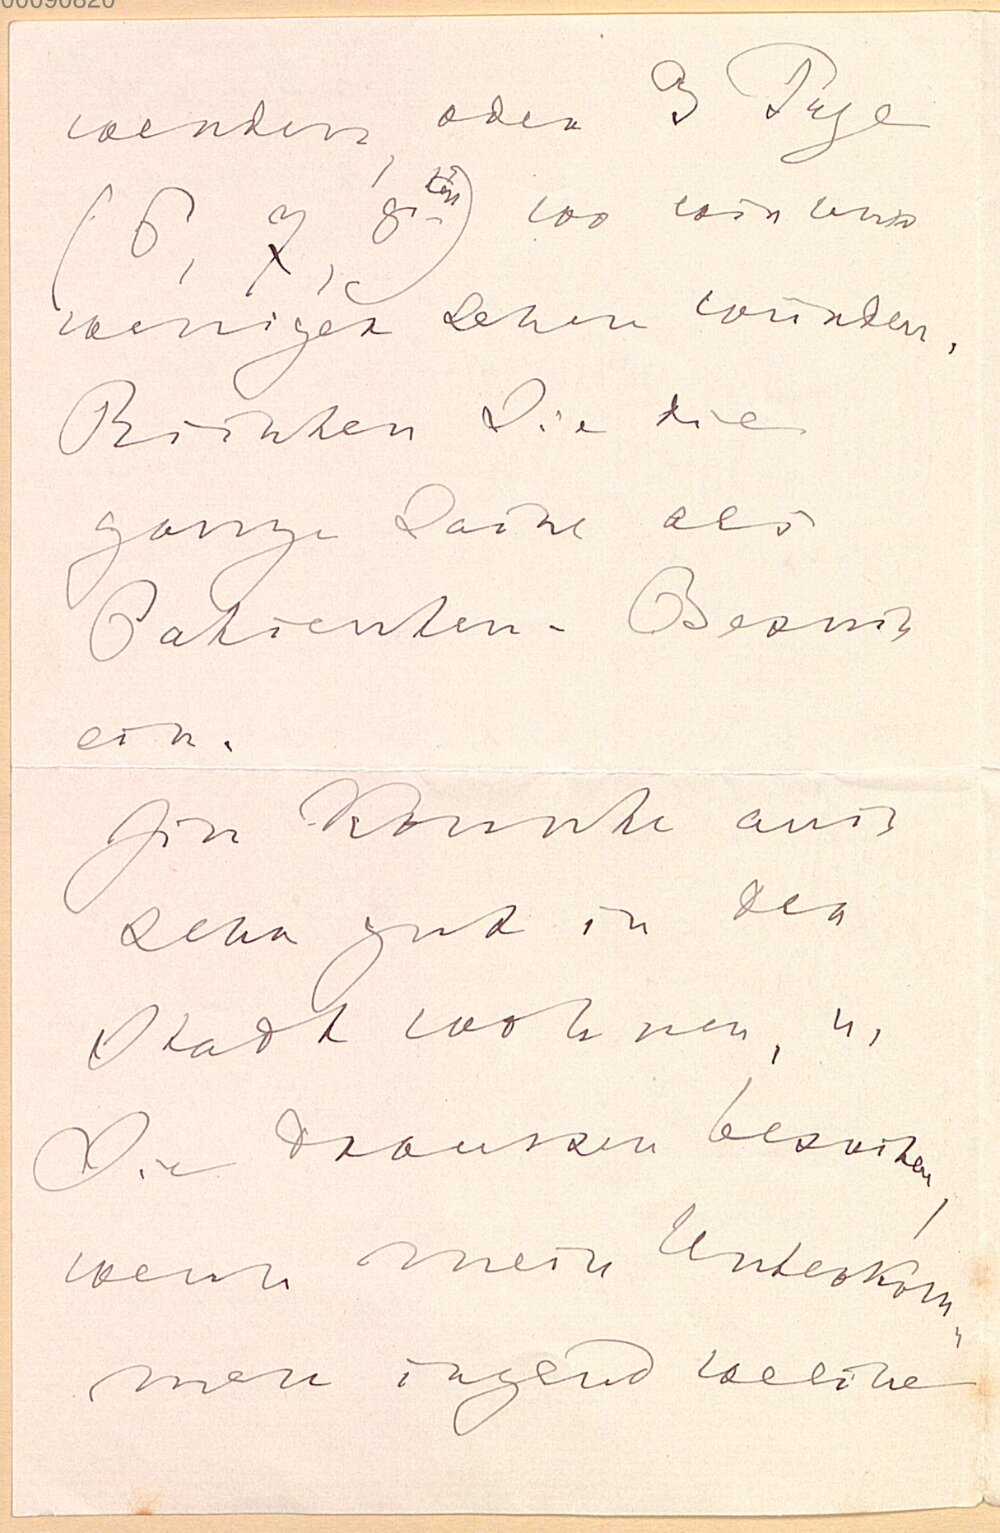 00090820
werden, oder 3 Tage
(6, 7, 8ten) wo wir uns
weniger sehen würden.
Richten Sie die
ganze Sache als
Patienten-Besuch
ein.
Ich könnte auch
sehr gut in der
Stadt wohnen, u.
Sie draussen besuchen,
wenn mein Unterkom-
men irgend welche